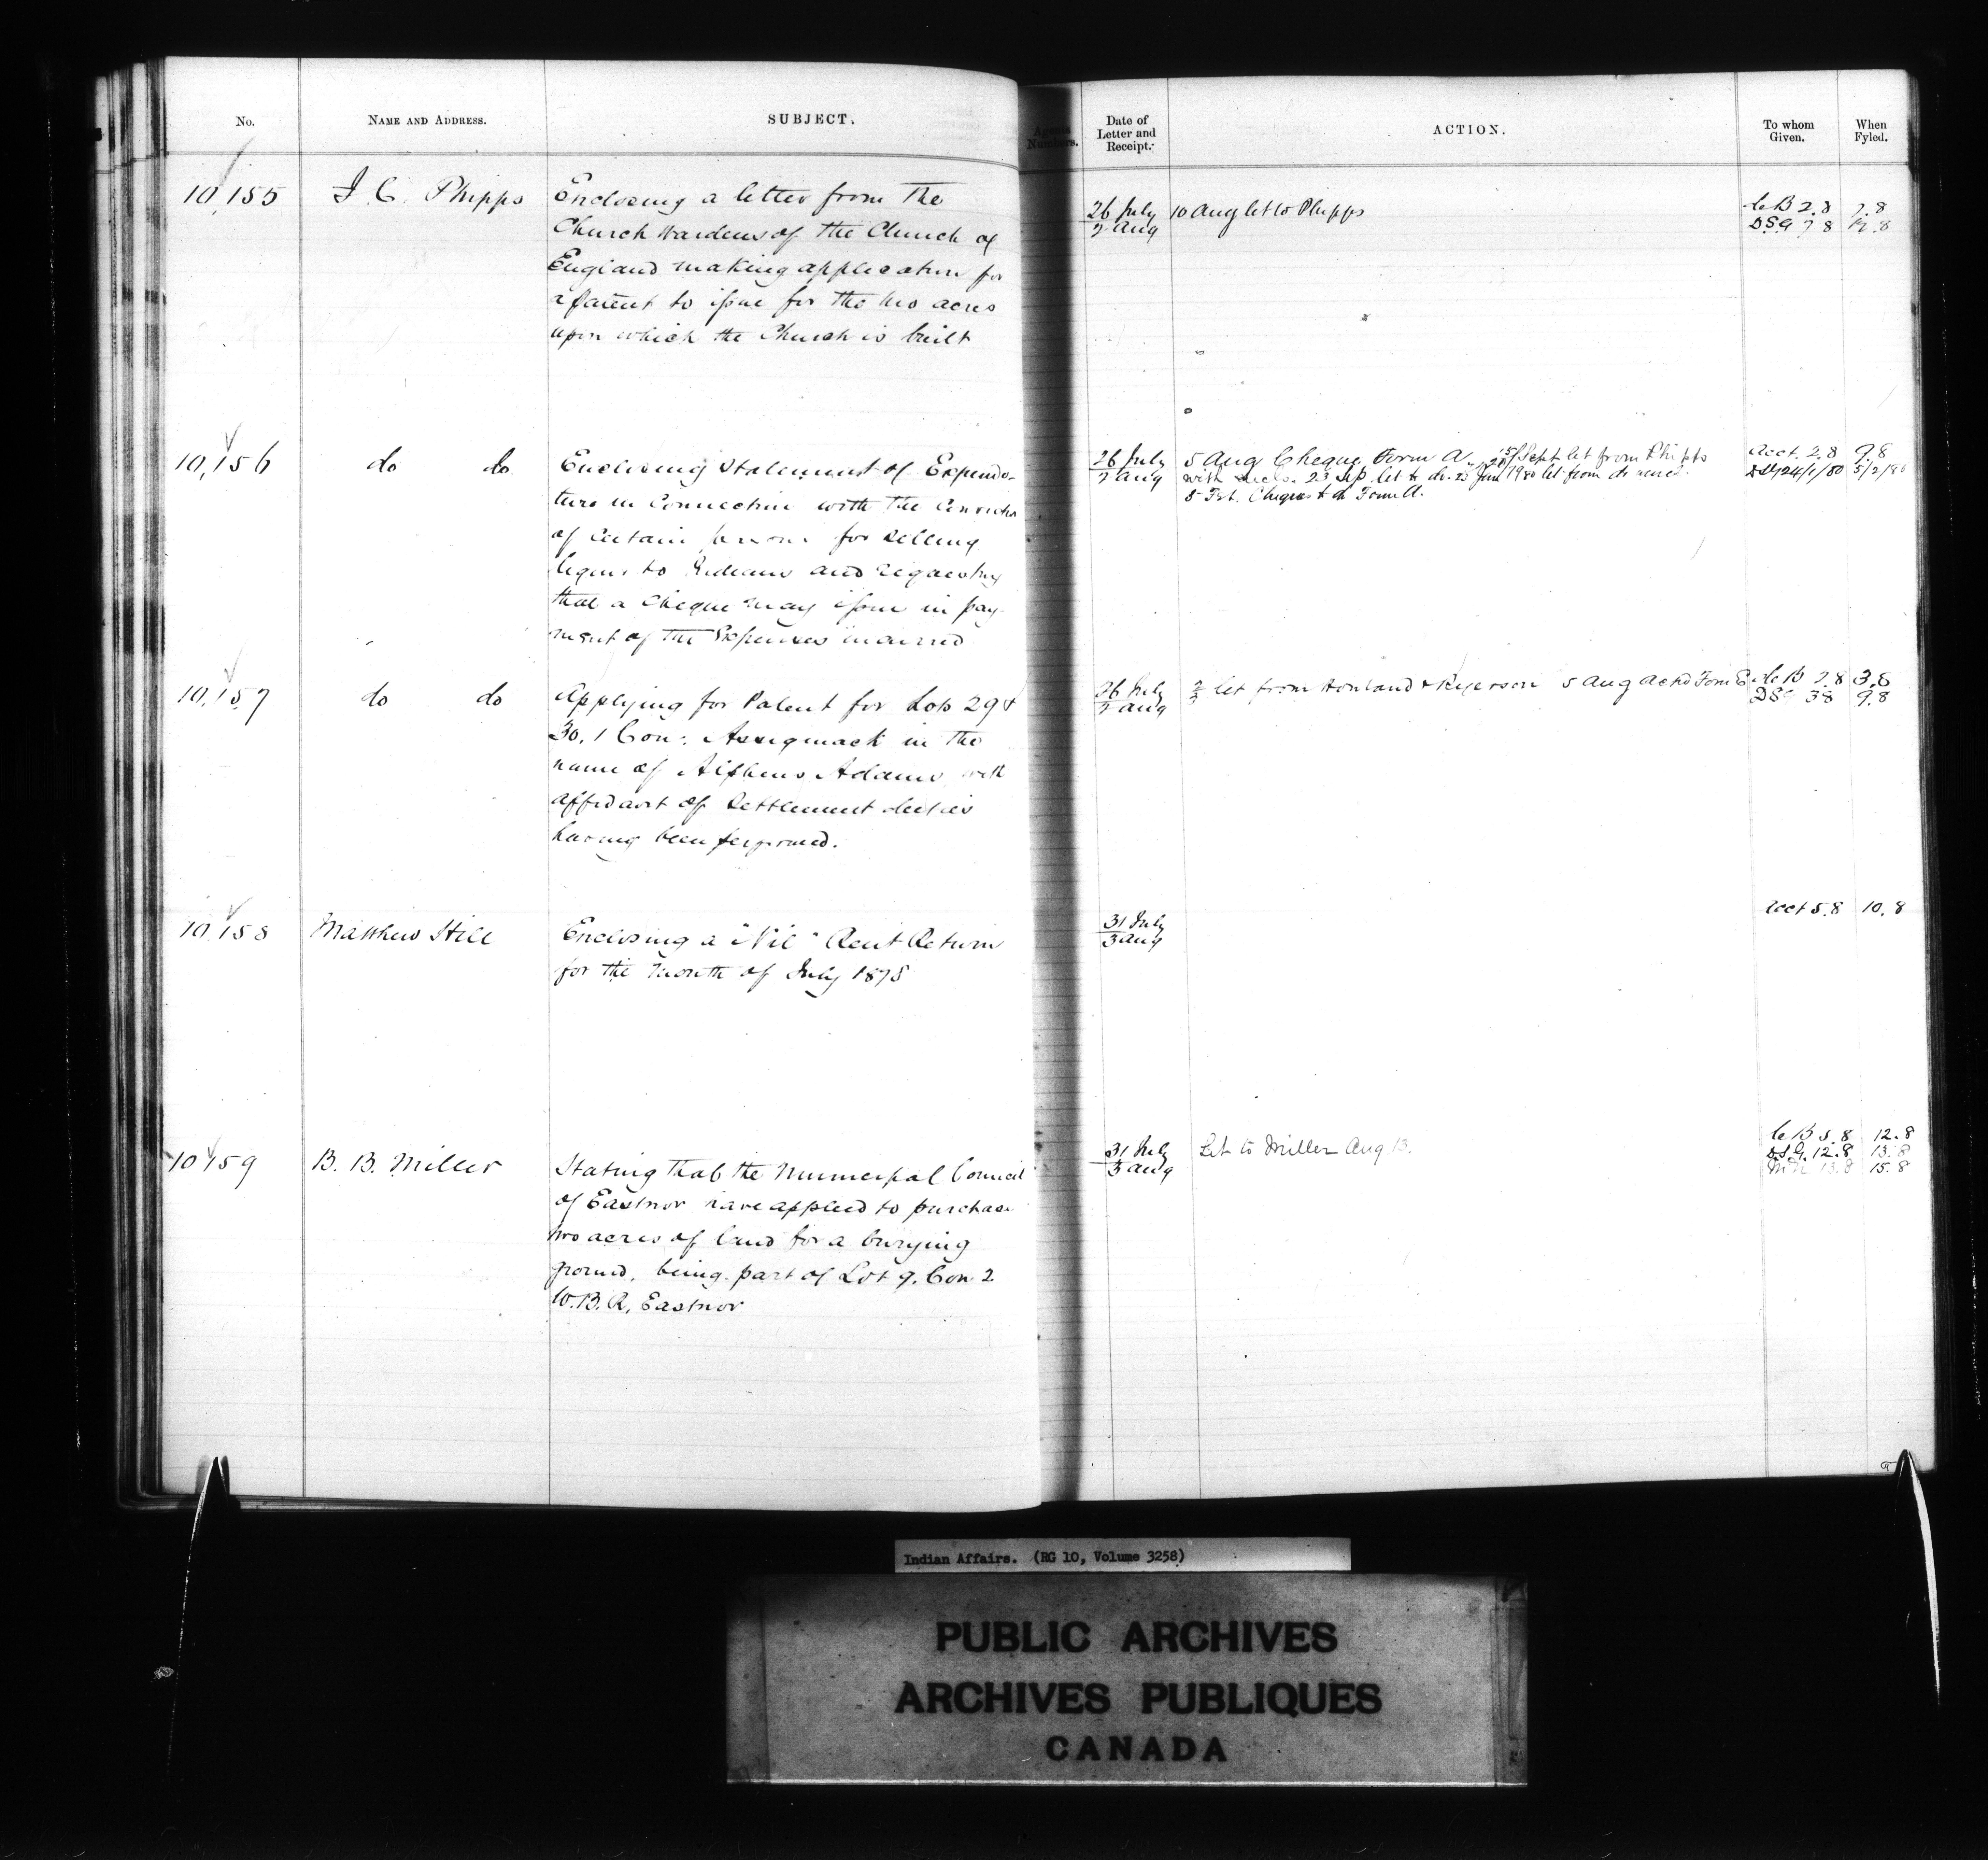 No.
NAME AND ADDRESS.
SUBJECT.
Agents Numbers.
Date of Letter and Receipt.
ACTION.
To whom Given.
When Fyled.
10,155
J. C. Phipps
Enclosing a letter from the
Church Wardens of the Church of
England making application for
a patent to issue for the two acres
upon which the Church is built
26 July
2 Aug
10 Aug let to Phipps
de B 2.8 7.8
DSG 7 8 12.8
10,156
do do
Enclosing Statement of Expendi-
ture in Connection with the Conviction
of Certain persons for selling
liquor to Indians and requesting
that a Cheque may issue in pay-
ment of the Expenses incurred
26 July
2 Aug
5 Aug Cheque Form A. Sept let from Phipps
with 23 Sep. let to do. 23 Jan 1980 let from do
5 Feb. Cheque to do Form A.
Acct. 2.8 9.8
24/1/80 5/2/80
10,157
do do
Applying for Patent for Lots 29 &
30, 1 Con: Assiginack in the
name of Alpheus Adams with
affidavit of Settlement duties
having been performed.
26 July
2 Aug
2/8 let from Howland & Ryerson 5 Aug ackd Form E
de B 2.8 3.8
DSG 3 8 9.8
10,158
Matthew Hill
Enclosing a "Nil" Rent Return
for the Month of July 1878
31 July
3 Aug
Acct 5.8 10.8
10,159
B. B. Miller
Stating that the Municipal Council
of Eastnor have applied to purchase
two acres of land for a burying
ground, being part of Lot 9. Con 2
W.B.R. Eastnor
31 July
3 Aug
Let to Miller Aug 13.
de B 5.8 12.8
D.S.G. 12.8 13.8
13.8 15.8
Indian Affairs. (RG 10, Volume 3258)
PUBLIC ARCHIVES
ARCHIVES PUBLIQUES
CANADA